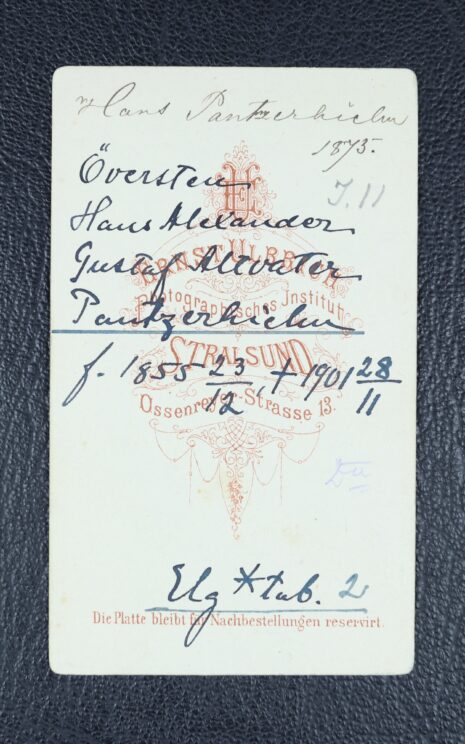 Hans Pantzerhielm
1875.
J. 11
Översten
Hans Alexander
Gustaf Altvater
Pantzerhielm
ERNST ULBRICH
Photographisches Institut
STRALSUND
f. 1855 23/12, † 1901 28/11
Ossenreyer-Strasse 13.
Elg * tab. 2
Die Platte bleibt für Nachbestellungen reservirt.